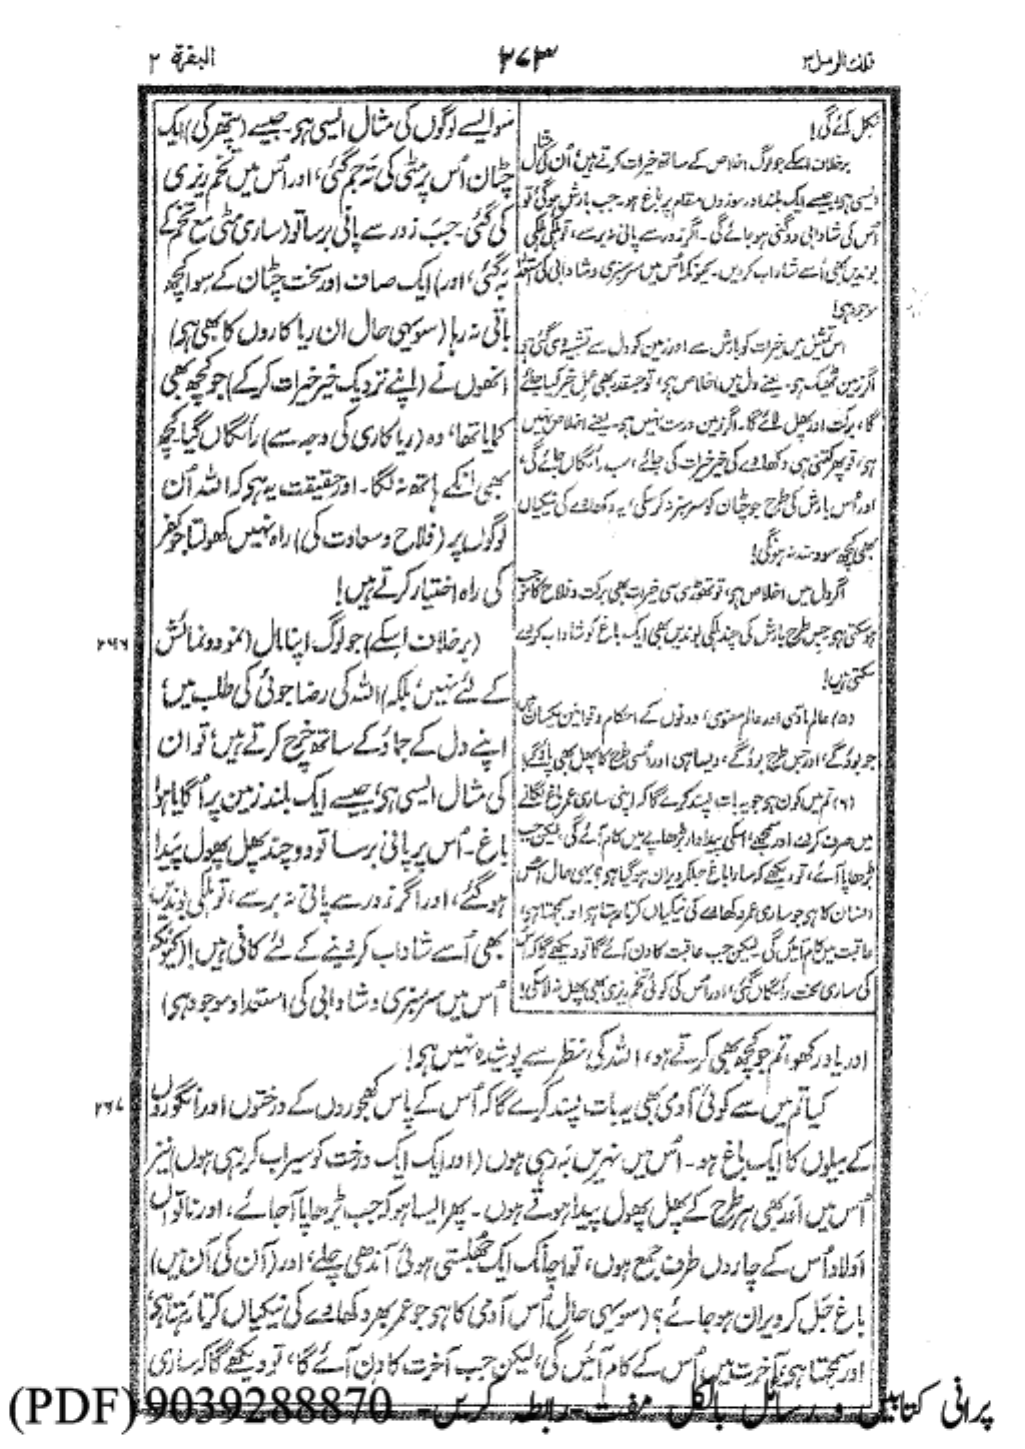 تلك الرسل ۳
۲۷۳
البقرة ۲
نکل آئے گی!
برخلاف اسکے جو لوگ اخلاص کے ساتھ خیرات کرتے ہیں، اُن کی مثال
ایسی ہی جیسے ایک بلند اور موزوں مقام پر باغ ہو۔ جب بارش ہوگی تو
اُس کی شادابی دوگنی ہو جائے گی۔ اگر زور سے پانی نہ برسے، تو ہلکی ہلکی
بوندیں بھی اُسے شاداب کر دیں۔ کیونکہ اُس میں سرسبزی و شادابی کی استعداد
موجود ہی!
اس تمثیل میں خیرات کو بارش سے اور زمین کو دل سے تشبیہ دی گئی ہی
اگر زمین ٹھیک ہی، یعنے دل میں اخلاص ہی، تو جسقدر بھی عمل خیر کیا جائے
گا، برکت اور پھل لائے گا۔ اگر زمین درست نہیں ہی، یعنے اخلاص نہیں
ہی، تو پھر کتنی ہی دکھاوے کی خیر خیرات کی جائے، سب رائگاں جائے گی،
اور اُس بارش کی طرح جو چٹان کو سرسبز نہ کر سکی، یہ دکھاوے کی نیکیاں
بھی کچھ سودمند نہ ہونگی!
اگر دل میں اخلاص ہی، تو تھوڑی سی خیرات بھی برکت و فلاح کا موجب
ہو سکتی ہی جس طرح بارش کی چند ہلکی بوندیں بھی ایک باغ کو شاداب کر دے
سکتی ہیں!
(۵) عالم مادّی اور عالم معنوی، دونوں کے احکام و قوانین یکساں ہیں
جو بوؤ گے، اور جس طرح بوؤ گے، ویسا ہی اور اُسی طرح کا پھل بھی پاؤ گے!
(۶) تم میں کون ہی جو یہ بات پسند کرے گا کہ اپنی ساری عمر باغ لگانے
میں صرف کر دے اور سمجھے، اسکی پیداوار بڑھاپے میں کام آئے گی، لیکن جب
بڑھاپا آئے، تو دیکھے کہ سارا باغ جلکر ویران ہو گیا ہی؟ یہی حال اُس
انسان کا ہی جو ساری عمر دکھاوے کی نیکیاں کرتا رہتا ہی اور سمجھتا ہی،
عاقبت میں کام آئیں گی۔ لیکن جب عاقبت کا دن آئے گا تو دیکھے گا کہ اُس
کی ساری محنت رائگاں گئی، اور اُس کی کوئی تخم ریزی بھی پھل نہ لا سکی!
سو ایسے لوگوں کی مثال ایسی ہی جیسے (پتھر کی) ایک
چٹان اُس پر مٹی کی تہ جم گئی، اور اُس میں تخم ریزی
کی گئی۔ جب زور سے پانی برسا تو (ساری مٹی مع تخم کے
بہ گئی، اور) ایک صاف اور سخت چٹان کے سوا کچھ
باقی نہ رہا (سو یہی حال ان ریاکاروں کا بھی ہی)
انھوں نے (اپنے نزدیک خیر خیرات کر کے) جو کچھ بھی
کمایا تھا، وہ (ریاکاری کی وجہ سے) رائگاں گیا کچھ
بھی اُنکے ہاتھ نہ لگا۔ اور حقیقت یہ ہی کہ اللہ اُن
لوگوں پر (فلاح و سعادت کی) راہ نہیں کھولتا جو کفر
کی راہ اختیار کرتے ہیں!
۲۶۶
(برخلاف اسکے) جو لوگ اپنا مال (نمود و نمائش
کے لئے نہیں، بلکہ) اللہ کی رضا جوئی کی طلب میں،
اپنے دل کے جماؤ کے ساتھ خرچ کرتے ہیں، تو ان
کی مثال ایسی ہی، جیسے ایک بلند زمین پر اُگایا ہوا
باغ۔ اُس پر پانی برسا تو دو چند پھل پھول پیدا
ہو گئے، اور اگر زور سے پانی نہ برسے، تو ہلکی بوندیں
بھی اُسے شاداب کر دینے کے لئے کافی ہیں! (کیونکہ
اُس میں سرسبزی و شادابی کی استعداد موجود ہی)
اور یاد رکھو، تم جو کچھ بھی کرتے ہو، اللہ کی نظر سے پوشیدہ نہیں ہی!
۲۶۷
کیا تم میں سے کوئی آدمی بھی یہ بات پسند کرے گا کہ اُس کے پاس کھجوروں کے درختوں اور انگوروں
کے بیلوں کا ایک باغ ہو۔ اُس میں نہریں بہ رہی ہوں (اور ایک ایک درخت کو سیراب کر رہی ہوں) نیز
اُس میں اَور بھی ہر طرح کے پھل پھول پیدا ہوتے ہوں۔ پھر ایسا ہو کہ جب بڑھاپا آ جائے، اور ناتواں
اولاد اُس کے چاروں طرف جمع ہوں، تو اچانک ایک جُھلستی ہوئی آندھی چلے، اور (آن کی آن میں)
باغ جَل کر ویران ہو جائے؟ (سو یہی حال اُس آدمی کا ہی جو عمر بھر دکھاوے کی نیکیاں کرتا رہتا ہی،
اور سمجھتا ہی، آخرت میں اُس کے کام آئیں گی، لیکن جب آخرت کا دن آئے گا، تو دیکھے گا کہ ساری
پرانی کتابیں و رسائل بالکل مفت۔ رابطہ کریں۔ 9039288870 (PDF)